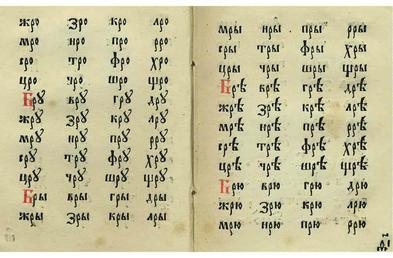 жро зро кро лро
мро нро про рро
сро тро фро хро
цро чро шро щро
Брꙋ врꙋ грꙋ дрꙋ
жрꙋ зрꙋ крꙋ лрꙋ
мрꙋ нрꙋ прꙋ ррꙋ
срꙋ трꙋ фрꙋ хрꙋ
црꙋ чрꙋ шрꙋ щрꙋ
Бры вры гры дры
жры зры кры лры
мры нры пры рры
сры тры фры хры
цры чры шры щры
Брѣ врѣ грѣ дрѣ
жрѣ зрѣ крѣ лрѣ
мрѣ нрѣ прѣ ррѣ
срѣ трѣ фрѣ хрѣ
црѣ чрѣ шрѣ щрѣ
Брю врю грю дрю
жрю зрю крю лрю
мрю нрю прю ррю